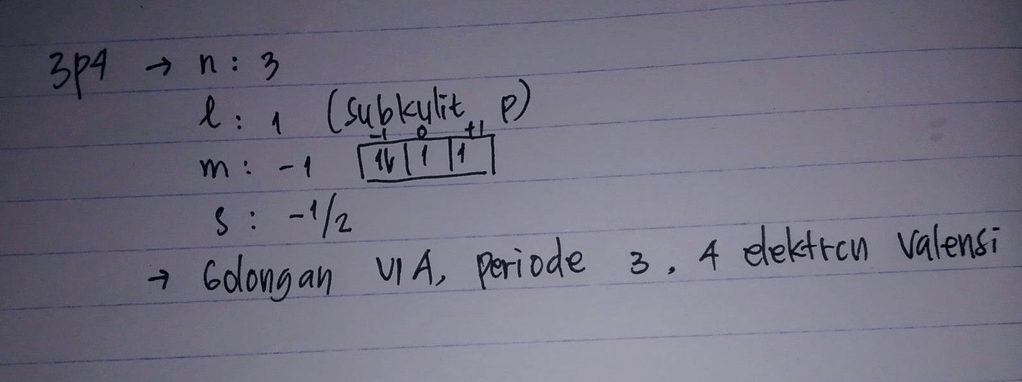 3p4 → n : 3
l : 1 (subkulit p)
-1 0 +1
m : -1 1l 1 1
s : -1/2
→ Golongan VI A, periode 3, 4 elektron valensi